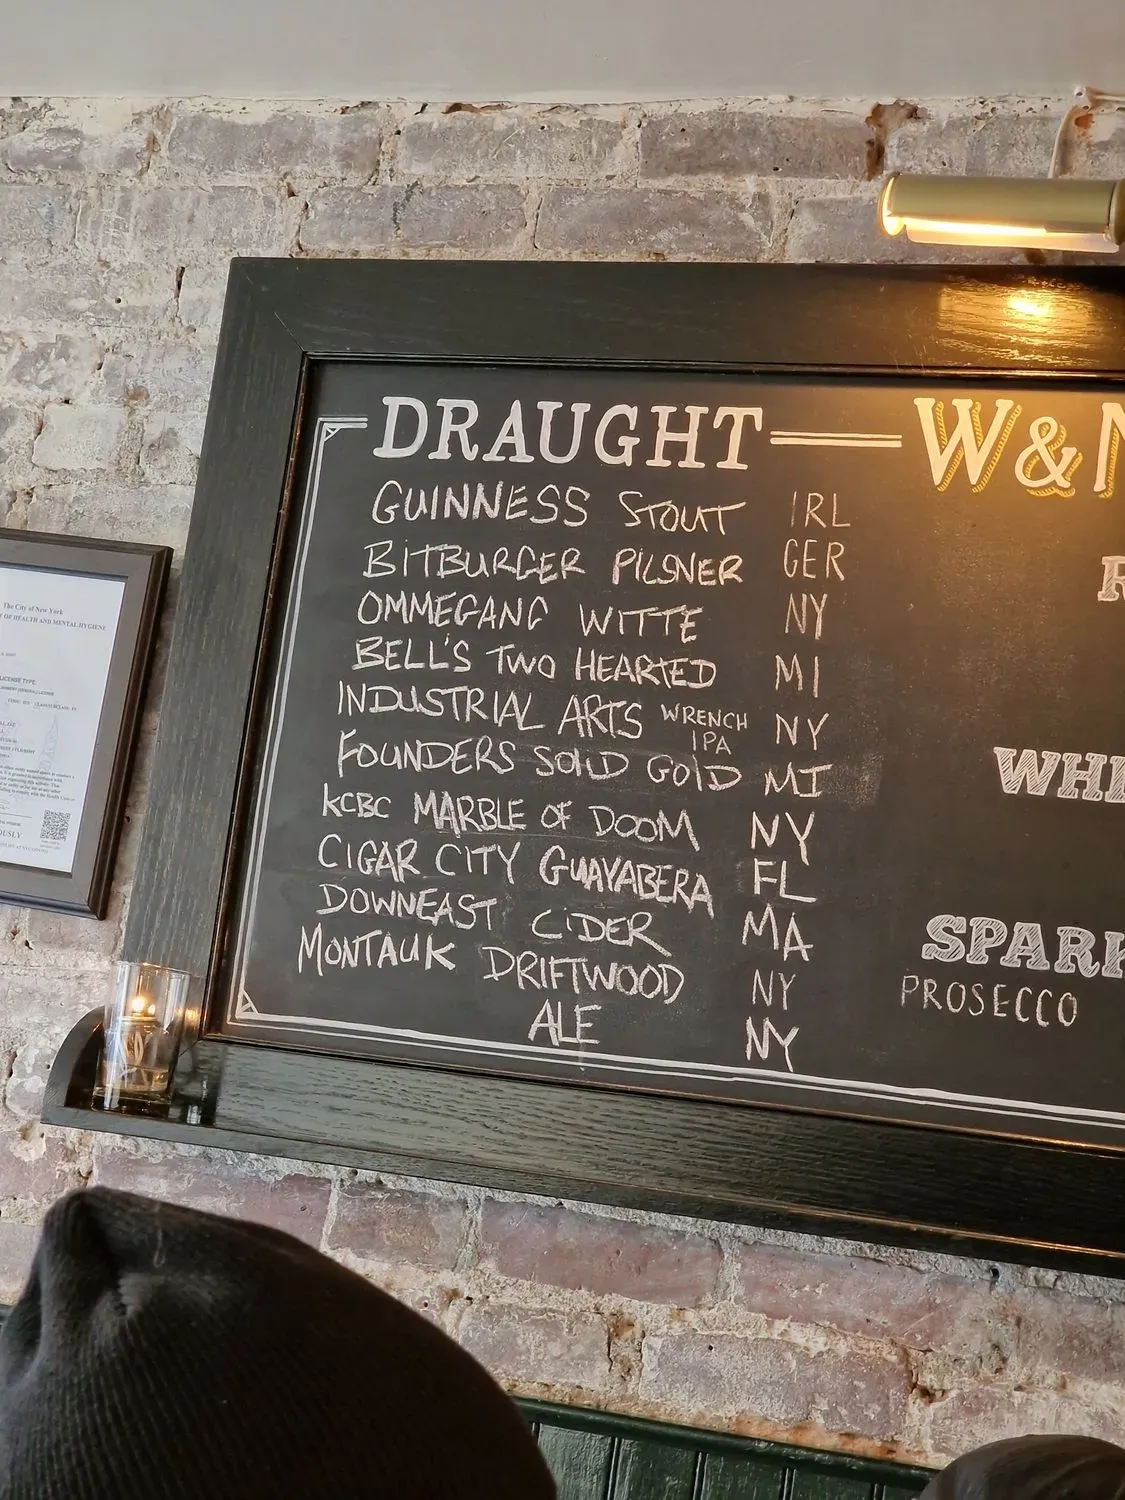 The City of New York
OF HEALTH AND MENTAL HYGIENE
LICENSE TYPE
DRAUGHT
GUINNESS STOUT IRL
BITBURGER PILSNER GER
OMMEGANG WITTE NY
BELL'S TWO HEARTED MI
INDUSTRIAL ARTS WRENCH IPA NY
FOUNDERS SOLID GOLD MI
KCBC MARBLE OF DOOM NY
CIGAR CITY GUAYABERA FL
DOWNEAST CIDER MA
MONTAUK DRIFTWOOD NY
ALE NY
W&
WHI
SPARK
PROSECCO